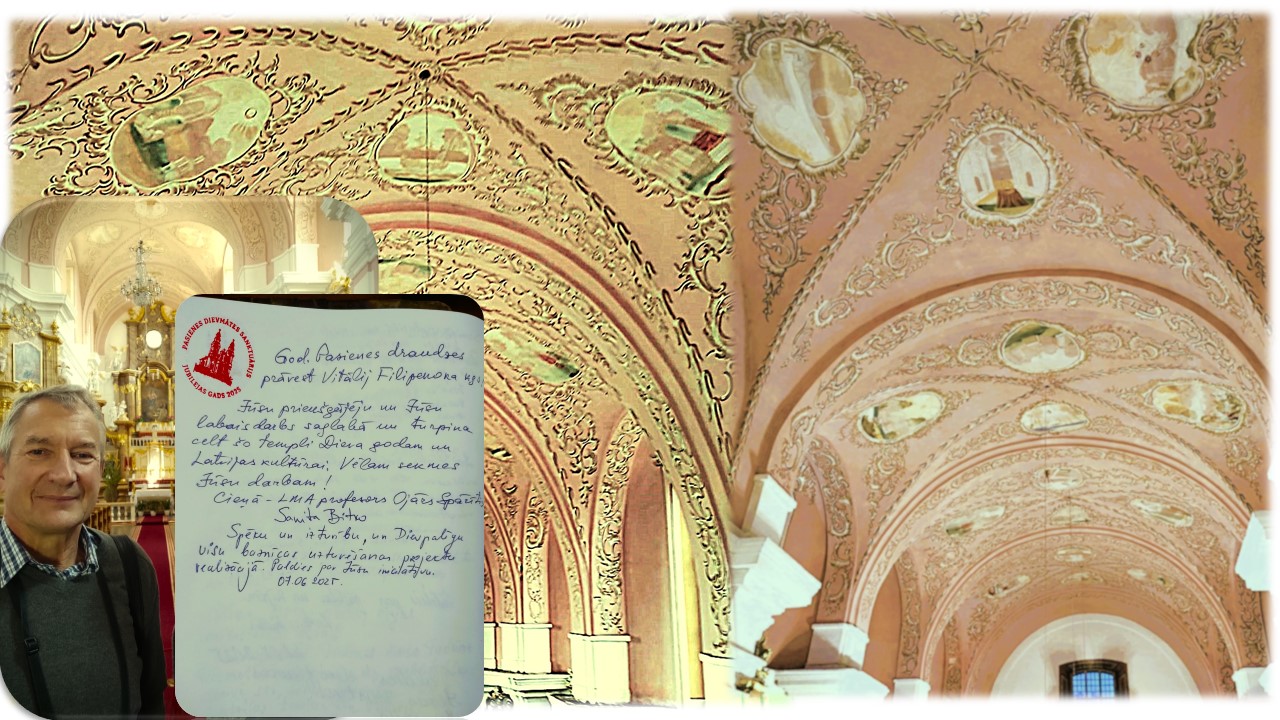 PASIENES DIEVMĀTES SANKTUĀRIJS
JUBILEJAS GADS 2025
God. Pasienes draudzes
prāvest Vitālij Filipenona kgs
Jūsu priekšgājēju un Jūsu
labais darbs saglabā un turpina
celt šo templi Dieva godam un
Latvijas kultūrai. Vēlam sekmes
Jūsu darbam!
Cieņā - LMA profesors Ojārs Spārītis
Sanita Bitko
Spēku un izturību, un Dievpalīgu
visu baznīcas uzturēšanas projektu
realizācijā. Paldies par Jūsu iniciatīvu.
07.06 2025.